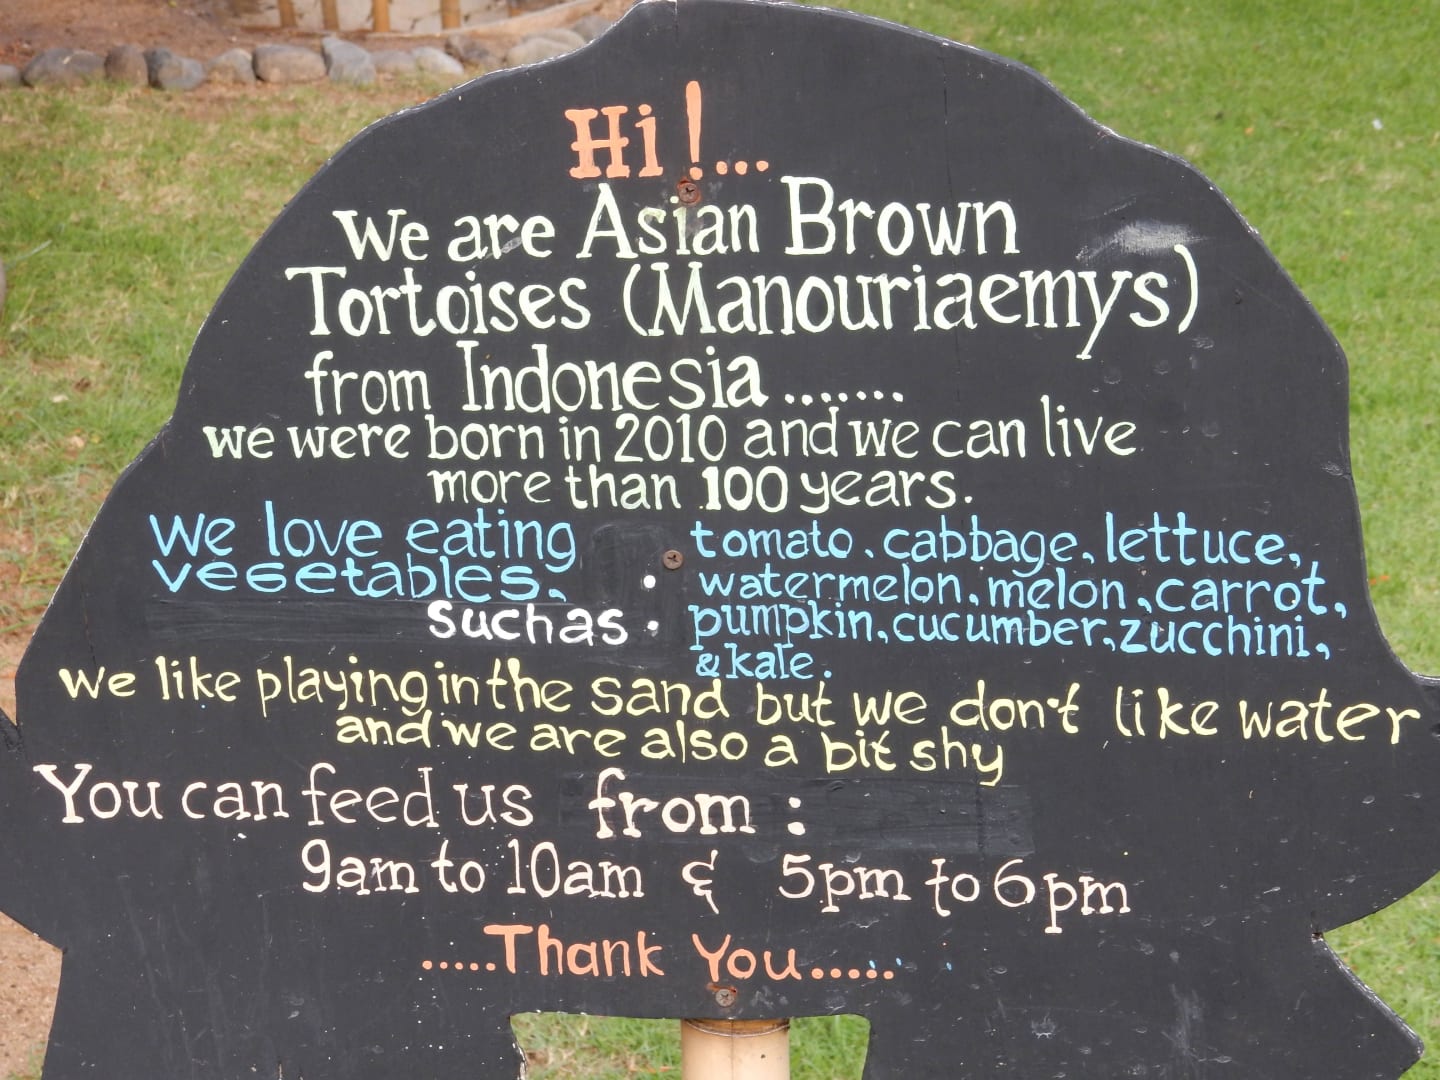 Hi!...
We are Asian Brown
Tortoises (Manouriaemys)
from Indonesia.......
we were born in 2010 and we can live
more than 100 years.
We love eating
vegetables.
Such as :
tomato, cabbage, lettuce,
watermelon, melon, carrot,
pumpkin, cucumber, zucchini,
& kale.
We like playing in the sand but we don't like water
and we are also a bit shy
You can feed us from :
9am to 10am & 5pm to 6pm
.....Thank You.....